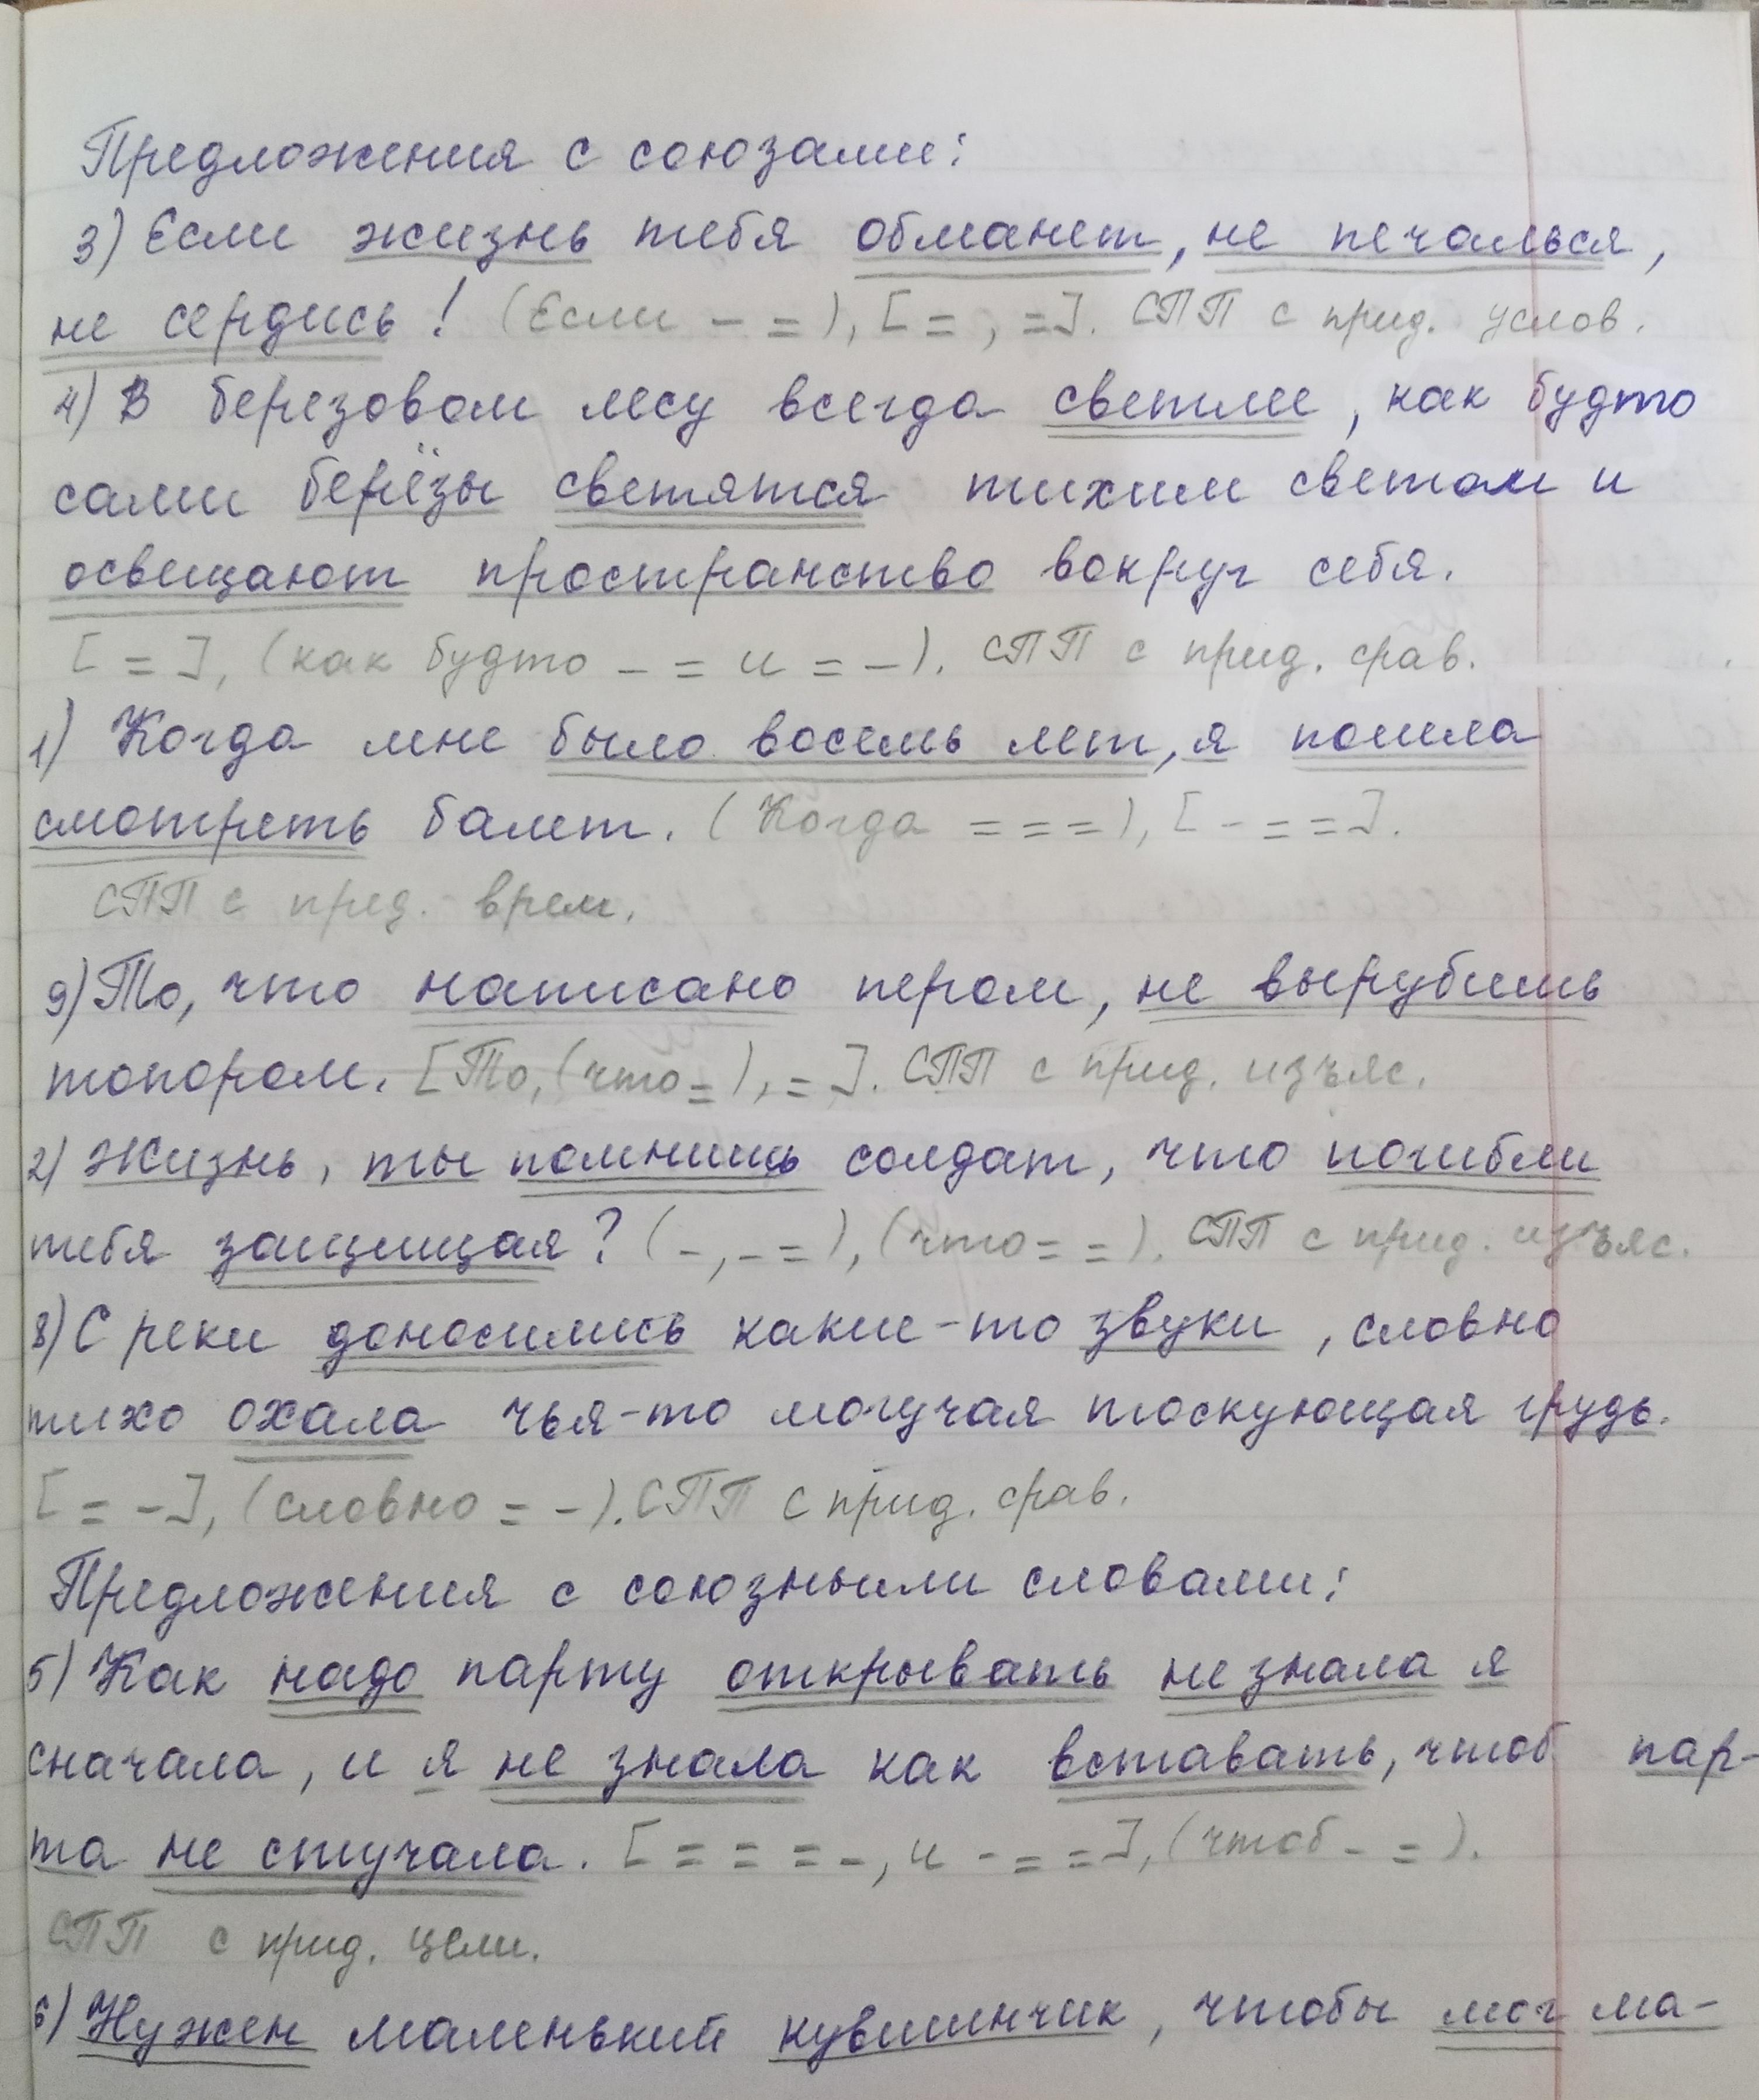 Предложения с союзами:
3) Если жизнь тебя обманет, не печалься,
не сердись! (Если - =), [=, =]. СПП с прид. услов.
4) В березовом лесу всегда светлее, как будто
сами берёзы светятся тихим светом и
освещают пространство вокруг себя.
[=], (как будто - = и = -). СПП с прид. срав.
1) Когда мне было восемь лет, я пошла
смотреть балет. (Когда = = =), [- = =].
СПП с пред. врем.
9) То, что написано пером, не вырубишь
топором. [То, (что =), =]. СПП с прид. изъяс.
2) Жизнь, ты помнишь солдат, что погибли
тебя защищая? (-, - =), (что = =). СПП с прид. изъяс.
8) С реки доносились какие-то звуки, словно
тихо охала чья-то могучая тоскующая грудь.
[= -], (словно = -). СПП с прид. срав.
Предложения с союзными словами:
5) Как надо парту открывать не знала я
сначала, и я не знала как вставать, чтоб пар-
та не стучала. [= = = -, и - = =], (чтоб - =).
СПП с прид. цели.
6) Нужен маленький кувшинчик, чтобы мог ма-